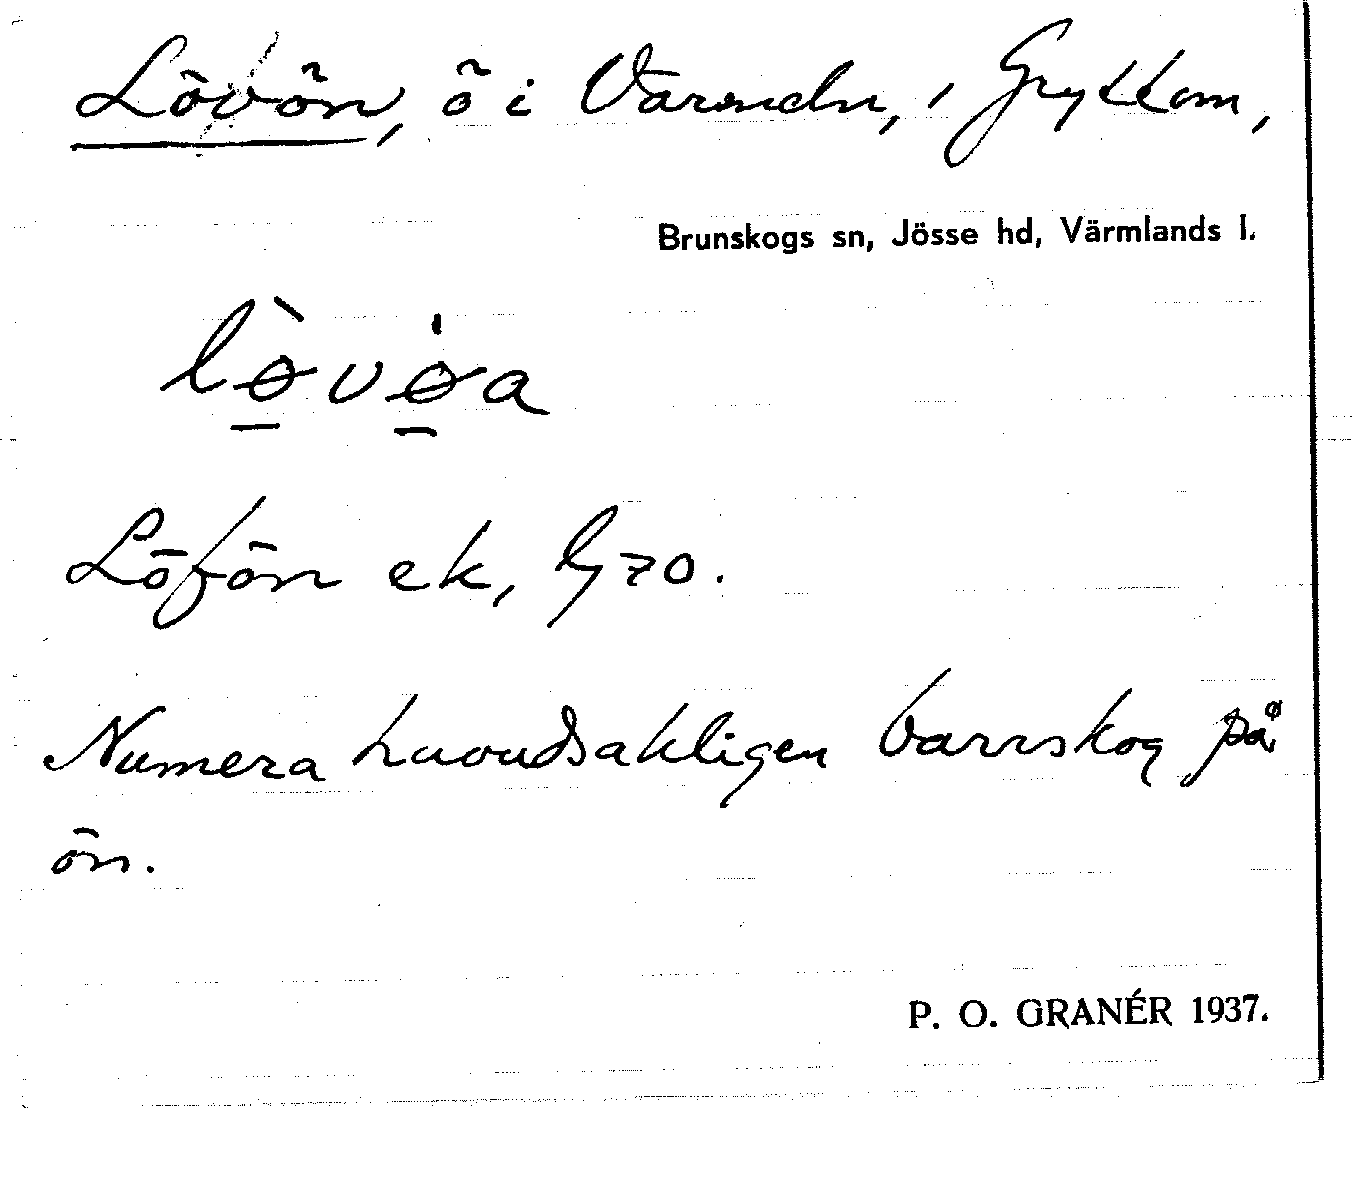 Lövön, ö i Värmeln, i Gryttom,
Brunskogs sn, Jösse hd, Värmlands l.
lø̱̀vø̱̍a
Löfön ek, G 70.
Numera huvudsakligen barrskog på
ön.
P. O. GRANÉR 1937.